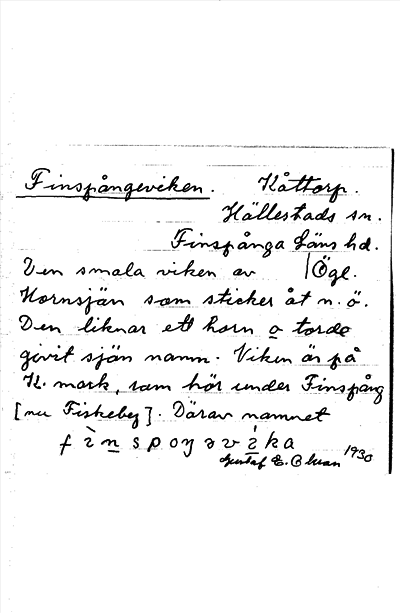 Finspångeviken. Kåttorp.
Hällestads sn.
Finspånga Läns hd.
Den smala viken av Ögl.
Hornsjön som sticker åt n.ö.
Den liknar ett horn o torde
givit sjön namn. Viken är på
K. mark, som hör under Finspång
[nu Fiskeby]. Därav namnet
fìnspoŋəvíka
Gustaf E. Olsson 1930